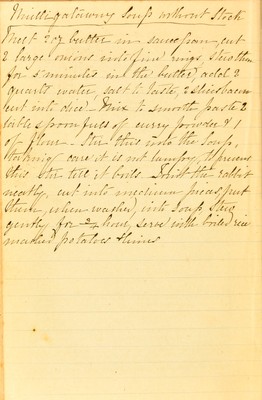 Mulligatawny Soup without Stock
Melt 2 oz butter in saucepan, cut
2 large onions into fine rings, stew them
for 5 minutes in the butter, add 2
quarts water, salt to taste, 2 slices bacon
cut into dice. Mix to smooth paste 2
table spoonfuls of curry powder & 1
of flour. Stir this into the Soup,
taking care it is not lumpy, to prevent
this stir till it boils. Joint the rabbit
neatly, cut into medium pieces, put
them, when washed, into Soup Stew
gently for 3/4 hour, Serve with boiled rice
mashed potatoes